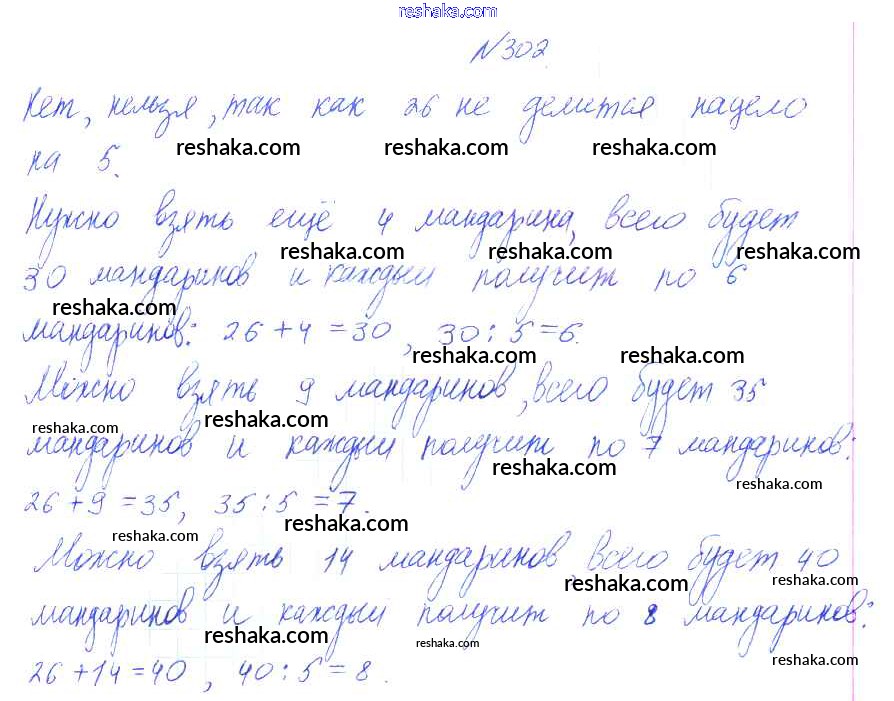 reshaka.com
№302.
Нет, нельзя, так как 26 не делится нацело
reshaka.com reshaka.com reshaka.com
на 5.
Нужно взять ещё 4 мандарина, всего будет
reshaka.com reshaka.com reshaka.com
30 мандаринов и каждый получит по 6
reshaka.com
мандаринов: 26 + 4 = 30, 30 : 5 = 6.
reshaka.com reshaka.com
Можно взять 9 мандаринов, всего будет 35
reshaka.com reshaka.com
мандаринов и каждый получит по 7 мандаринов:
reshaka.com reshaka.com
26 + 9 = 35, 35 : 5 = 7.
reshaka.com reshaka.com
Можно взять 14 мандаринов, всего будет 40
reshaka.com reshaka.com
мандаринов и каждый получит по 8 мандаринов:
reshaka.com reshaka.com reshaka.com
26 + 14 = 40, 40 : 5 = 8.